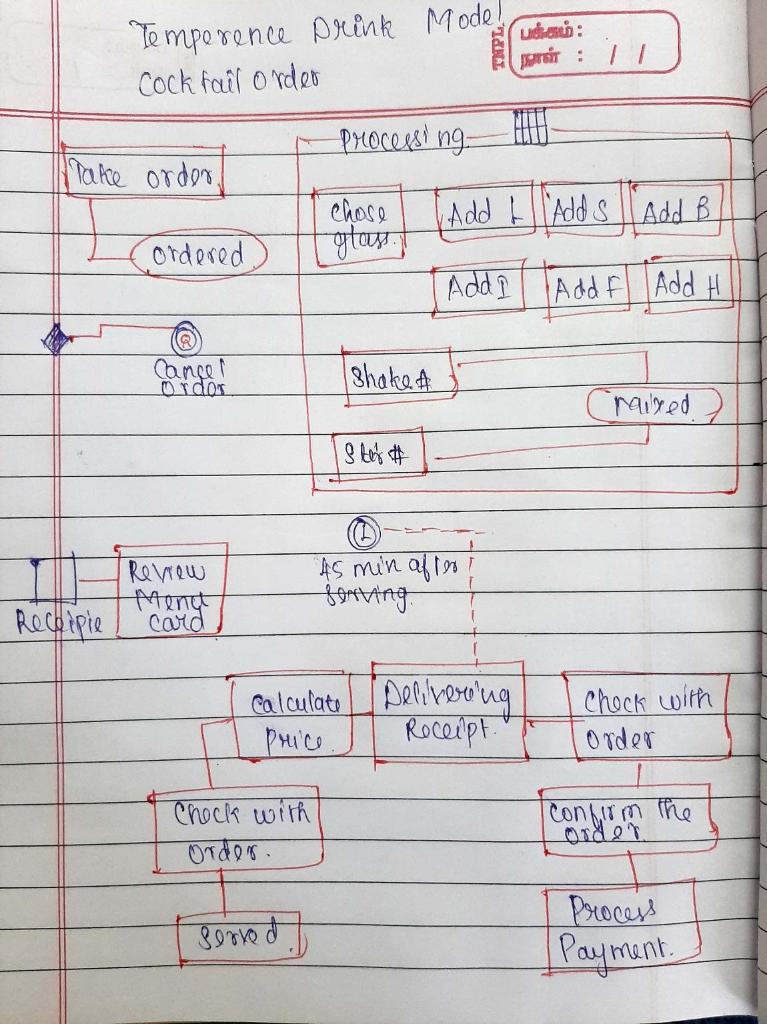 Temperence Drink Model
Cocktail order
TNPL
பக்கம் :
நாள் : / /
Processing
Take order
Chose
glass.
Add L
Add S
Add B
ordered
Add I
Add F
Add H
Cancel
Order
Shake #
mixed
Stir #
Review
Menu
Card
Receipie
45 min after
serving.
Calculate
Price
Delivering
Receipt.
Check with
Order
Check with
Order.
Confirm the
Order
Served.
Process
Payment.